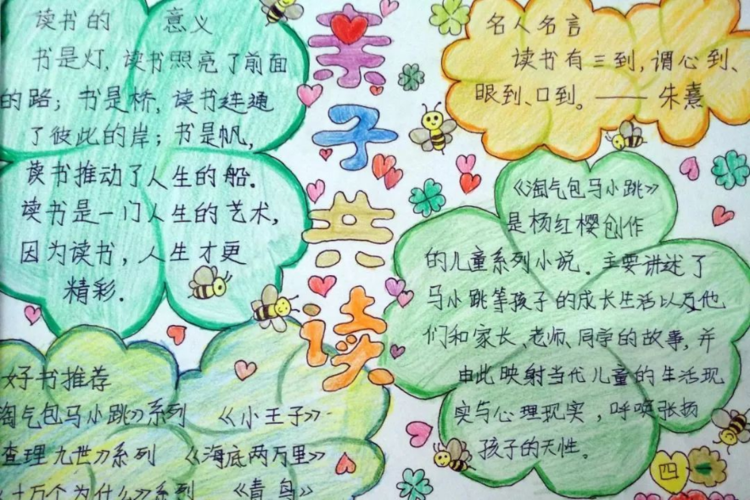 读书的 意义
书是灯,读书照亮了前面
的路;书是桥,读书连通
了彼此的岸;书是帆,
读书推动了人生的船.
读书是一门人生的艺术,
因为读书,人生才更
精彩.
亲子共读
名人名言
读书有三到,谓心到、
眼到、口到。——朱熹
《淘气包马小跳》
是杨红樱创作
的儿童系列小说.主要讲述了
马小跳等孩子的成长生活以及他
们和家长、老师、同学的故事,并
由此映射当代儿童的生活现
实与心理现实,呼唤张扬
孩子的天性。
好书推荐
淘气包马小跳》系列 《小王子》
查理九世》系列 《海底两万里》
十万个为什么》系列 《青鸟》
四一